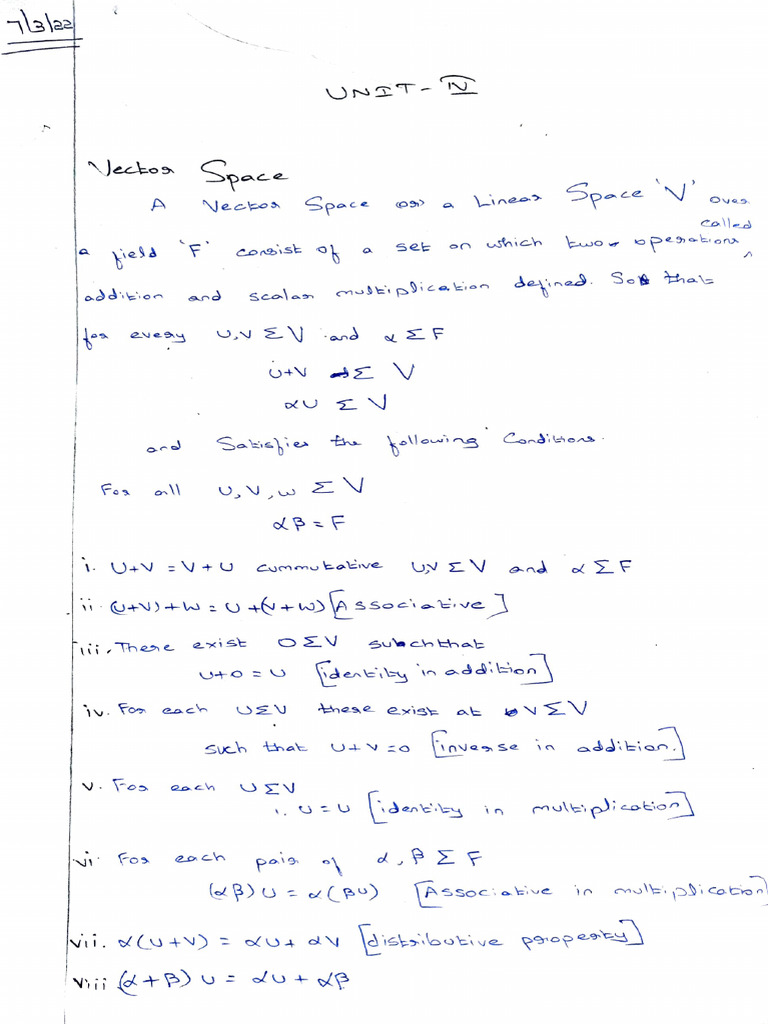 7/3/22
UNIT - IV
Vector Space
A Vector Space (or) a Linear Space 'V' over
called
a field 'F' consist of a set on which two operations ^
addition and scalar multiplication defined. So that
for every U,V Σ V and α Σ F
U+V Σ V
αU Σ V
and Satisfies the following Conditions.
For all U, V, W Σ V
αβ = F
i. U+V = V+U cummutative U,V Σ V and α Σ F
ii. (U+V)+W = U+(V+W) [Associative]
iii. There exist 0 Σ V subchthat
U+0 = U [identity in addition]
iv. For each U Σ V there exist at V Σ V
such that U+V =0 [inverse in addition.]
v. For each U Σ V
1. U = U [identity in multiplication]
vi. For each pair of α, β Σ F
(αβ)U = α(βU) [Associative in multiplication]
vii. α(U+V) = αU+ αV [distributive property]
viii (α+β) U = αU+ αβ